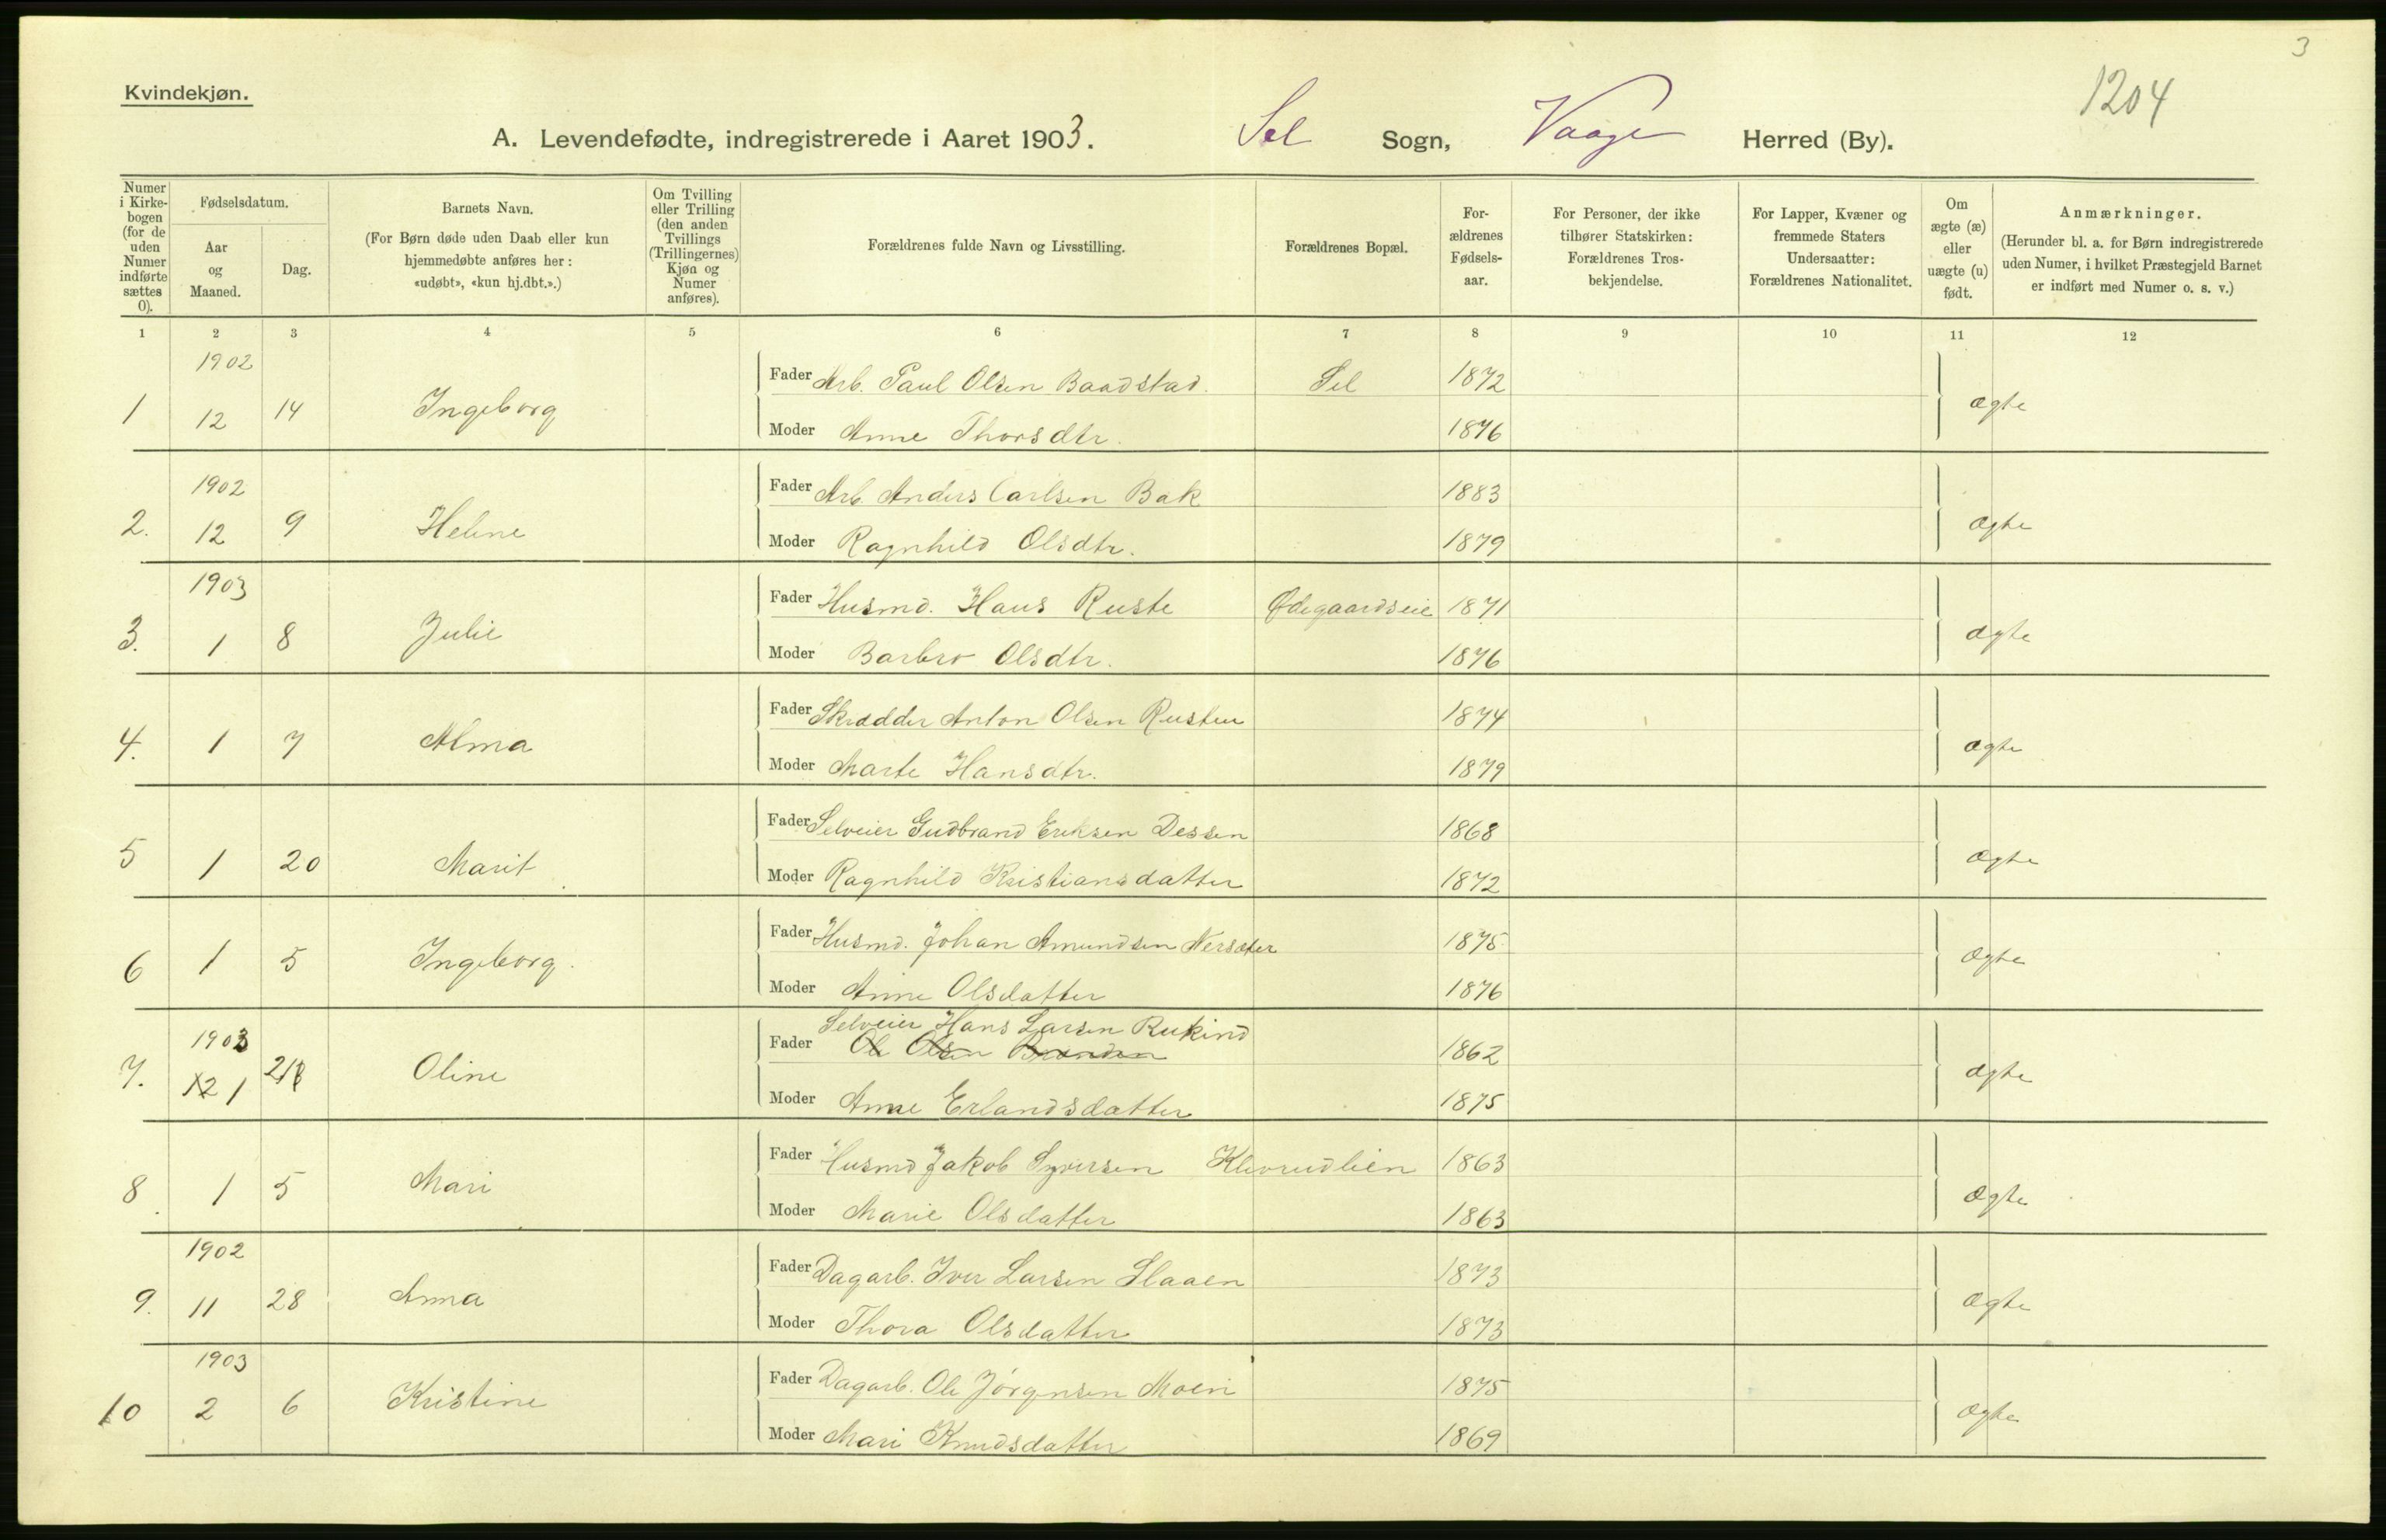 3
1204
Kvindekjøn.
A. Levendefødte, indregistrerede i Aaret 1903. Sel Sogn, Vaage Herred (By).
Numer i Kirkebogen (for de uden Numer indførte sættes 0).
Fødselsdatum.
Aar og Maaned.
Dag.
Barnets Navn.
(For Børn døde uden Daab eller kun hjemmedøbte anføres her: «udøbt», «kun hj.dbt.».)
Om Tvilling eller Trilling (den anden Tvillings (Trillingernes) Kjøn og Numer anføres).
Forældrenes fulde Navn og Livsstilling.
Forældrenes Bopæl.
Forældrenes Fødselsaar.
For Personer, der ikke tilhører Statskirken: Forældrenes Trosbekjendelse.
For Lapper, Kvæner og fremmede Staters Undersaatter: Forældrenes Nationalitet.
Om ægte (æ) eller uægte (u) født.
Anmærkninger.
(Herunder bl. a. for Børn indregistrerede uden Numer, i hvilket Præstegjeld Barnet er indført med Numer o. s. v.)
1 2 3 4 5 6 7 8 9 10 11 12
1902
Fader Arb. Paul Olsen Baadstad. Sel 1872
1 12 14 Ingeborg ægte
Moder Anne Thorsdtr. 1876
1902
Fader Arb. Anders Carlsen Bak 1883
2. 12 9 Helene ægte
Moder Ragnhild Olsdtr. 1879
1903
Fader Husmd. Hans Ruste Ødegaardseie 1871
3. 1 8 Julie ægte
Moder Barbro Olsdtr. 1876
Fader Skrædder Anton Olsen Rusten 1874
4. 1 7 Alma ægte
Moder Marte Hansdtr. 1879
Fader Selveier Gudbrand Eriksen Dessen 1868
5 1 20 Marit ægte
Moder Ragnhild Kristiansdatter 1872
Fader Husmd. Johan Amundsen Nersæter 1875
6 1 5 Ingeborg. ægte
Moder Anne Olsdatter 1876
Selveier Hans Larsen Rukind
1903
Fader Ole Olsen 1862
7. 12 1 21 Oline ægte
Moder Anne Erlandsdatter 1875
Fader Husmd Jakob Syversen Kleivrudlien 1863
8. 1 5 Mari ægte
Moder Marie Olsdatter 1863
1902
Fader Dagarb. Iver Larsen Slaaen 1873
9. 11 28 Anna ægte
Moder Thora Olsdatter 1873
1903
Fader Dagarb. Ole Jörgensen Moen 1875
10 2 6 Kristine ægte
Moder Mari Knudsdatter 1869